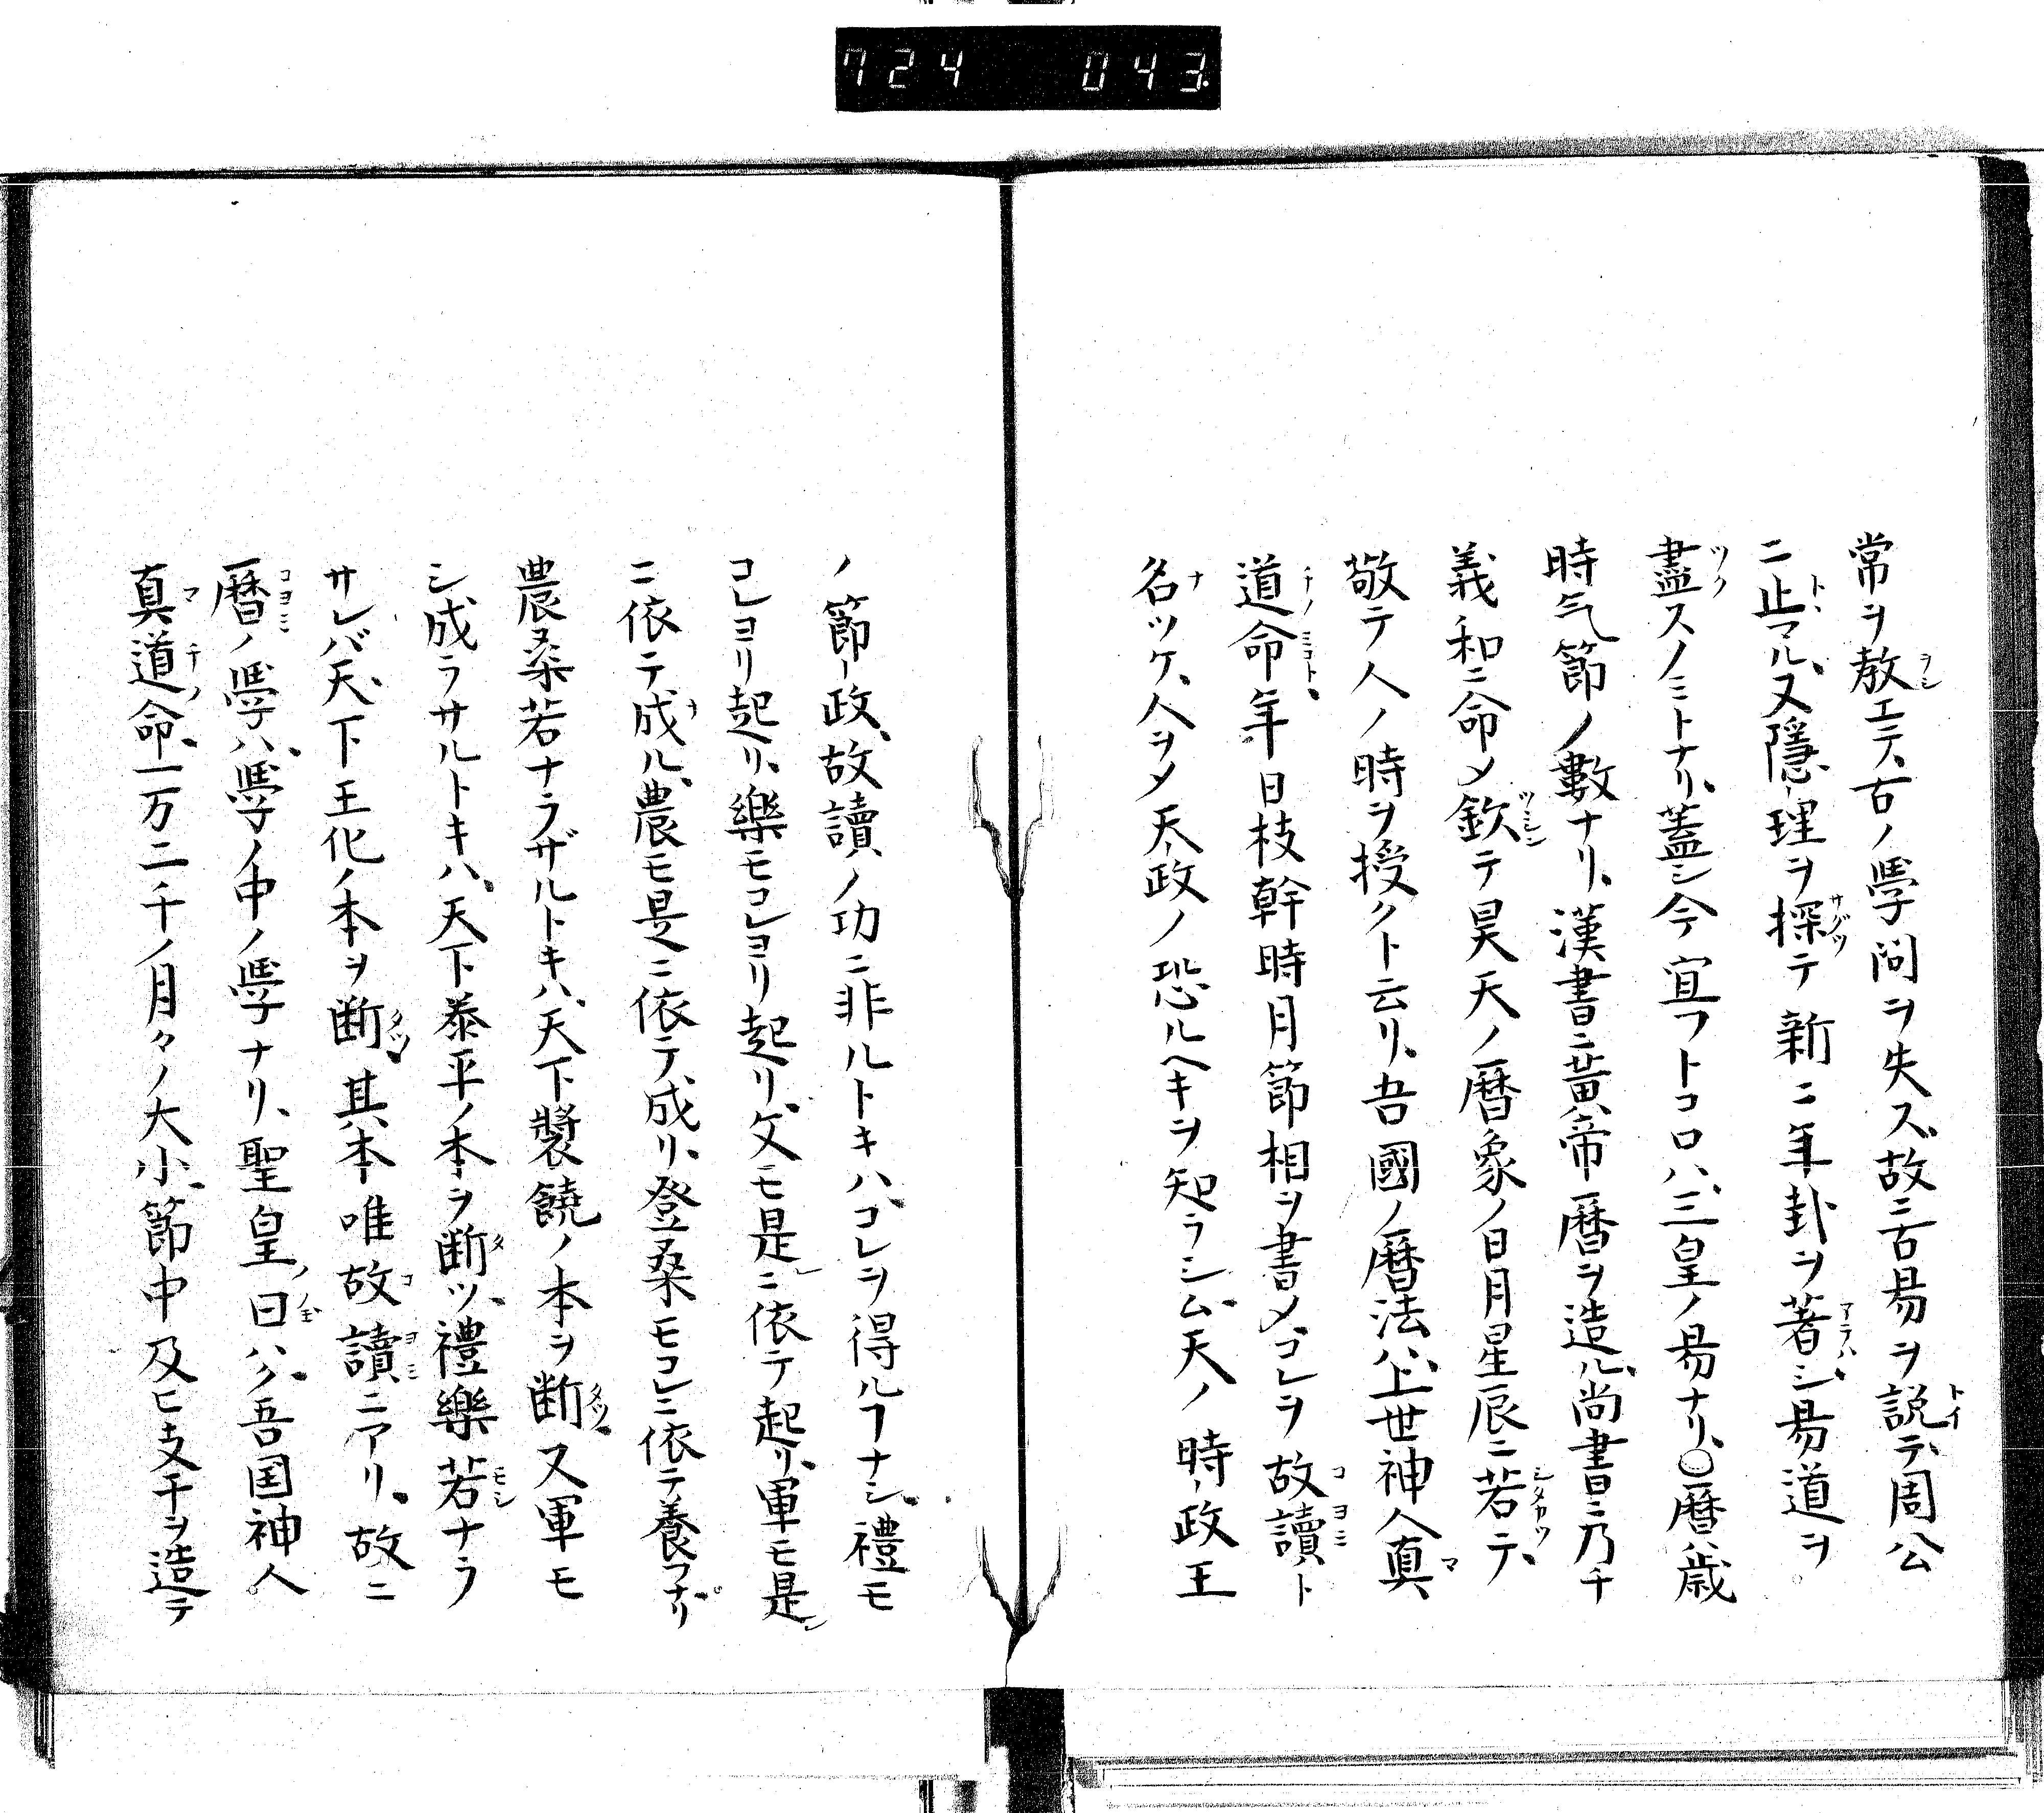 724 043
常ヲ教エテ、古ノ學問ヲ失ズ、故ニ古易ヲ説テ、周公
ニ止マル、又隱理ヲ探テ新ニ年卦ヲ著シ、易道ヲ
盡スノミトナリ、蓋シ今宣フトコロハ、三皇ノ易ナリ、○暦ハ歳
時気節ノ數ナリ、漢書ニ黄帝暦ヲ造ル、尚書ニ乃チ
義和ニ命メ欽テ昊天ノ暦象ノ日月星辰ニ若テ、
敬テ人ノ時ヲ授クト云リ、吾國ノ暦法ハ、上世神人真
道命、年日枝幹時月節相ヲ書メ、コレヲ故讀ト
名ツケ、人ヲメ天政ノ恐ルヘキヲ知ラシム、天ノ時政王
ノ節政、故讀ノ功ニ非ルトキハ、コレヲ得ルヿナシ、禮モ
コレヨリ起リ、樂モコレヨリ起リ、文モ是ニ依テ起リ、軍モ是
ニ依テ成ル、農モ是ニ依テ成リ、登桑モコレニ依テ養フナリ
農桑若ナラザルトキハ、天下製饒ノ本ヲ断ス又軍モ
シ成ラサルトキハ、天下泰平ノ本ヲ断ツ、禮樂若ナラ
サレバ天下王化ノ本ヲ断、其本唯故讀ニアリ、故ニ
暦ノ學ハ、學ノ中ノ學ナリ、聖皇ノ曰ハク、吾国神人
真道命、一万二千ノ月々ノ大小、節中及ヒ支干ヲ造テ